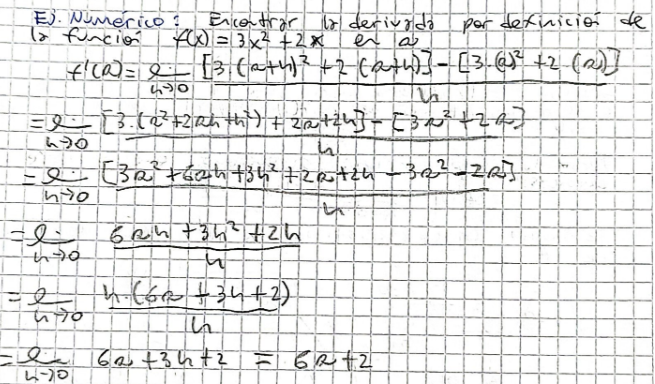 Ej. Numérico: Encontrar la derivada por definición de
la función f(x) = 3x² + 2x en a
f'(a) = lim h→0 [3·(a+h)² + 2(a+h)] - [3·(a)² + 2(a)] / h
= lim h→0 [3·(a²+2ah+h²) + 2a+2h] - [3a²+2a] / h
= lim h→0 [3a²+6ah+3h²+2a+2h-3a²-2a] / h
= lim h→0 6ah+3h²+2h / h
= lim h→0 h·(6a+3h+2) / h
= lim h→0 6a+3h+2 = 6a+2